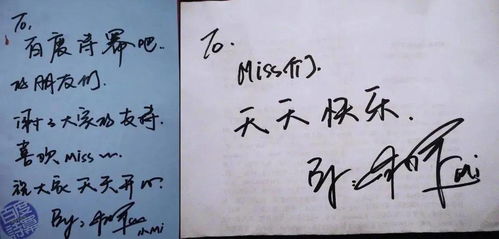 To,
百度诗幂吧.
的朋友们.
谢谢大家的支持
喜欢miss~
祝大家天天开心
By:
小Mi
To.
Miss们.
天天快乐.
By:
Mi